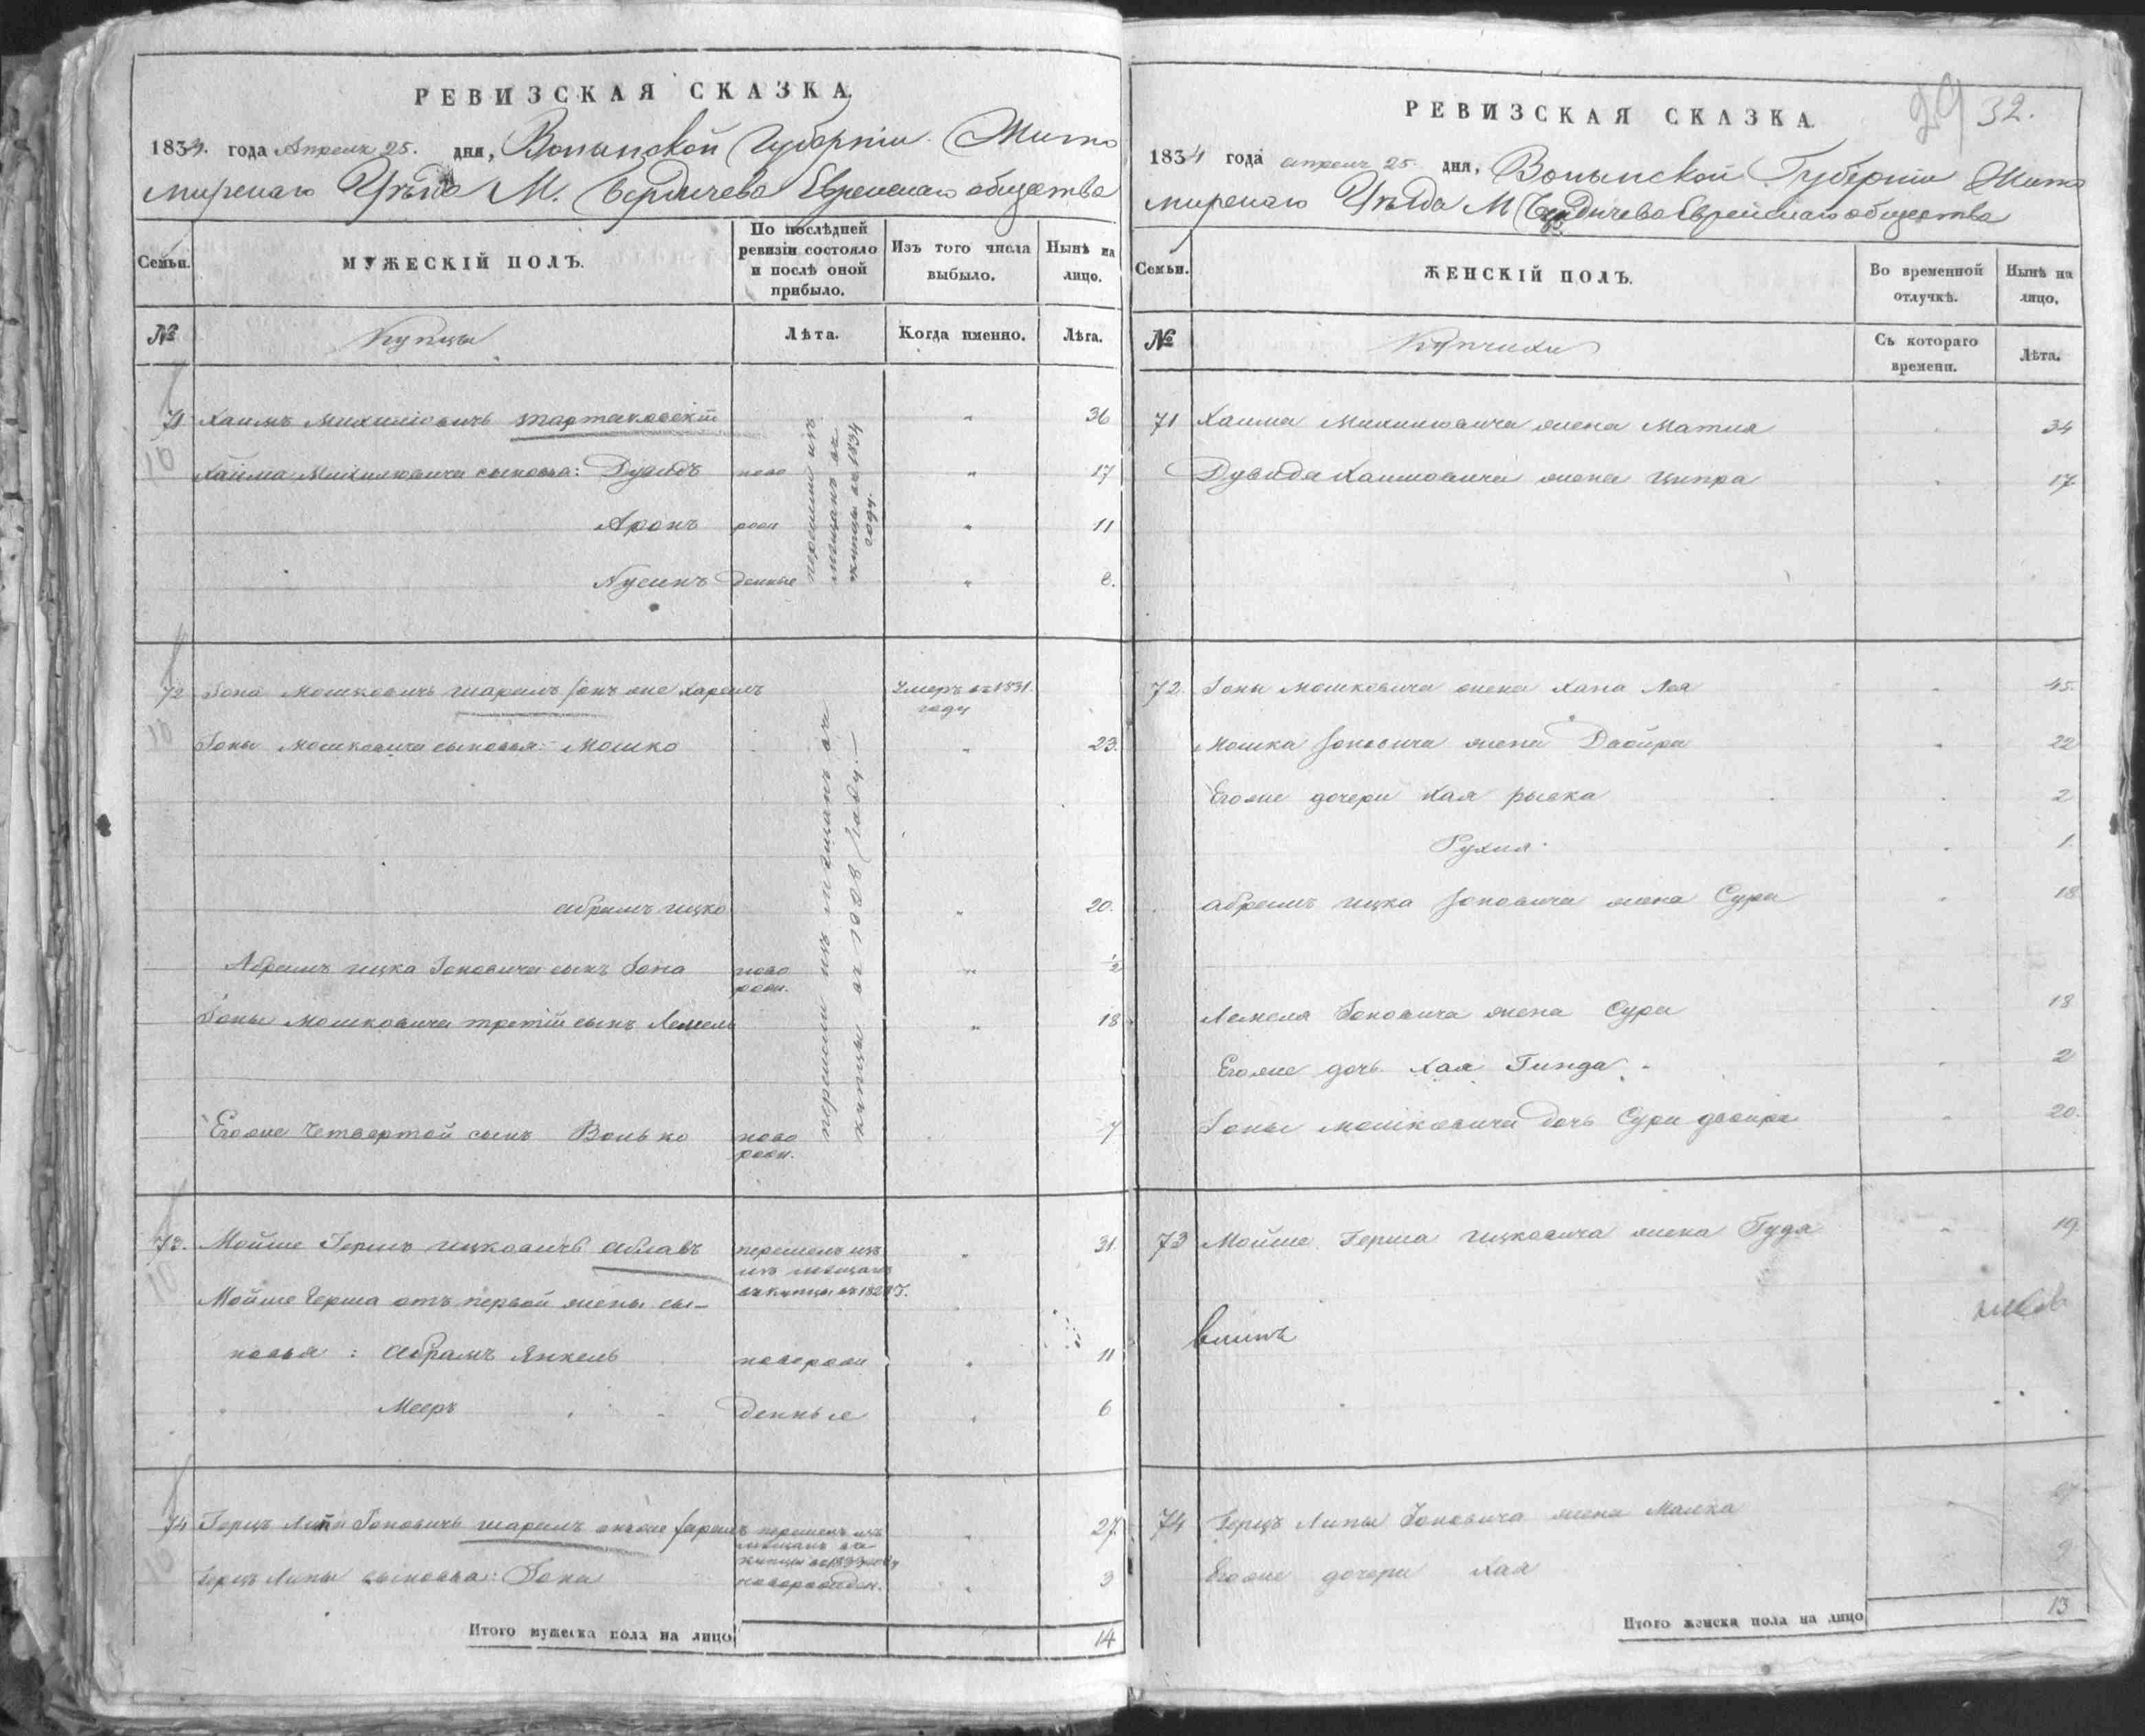 РЕВИЗСКАЯ СКАЗКА.
1834. года Апреля 25. дня, Волынской Губерніи Жито
мирскаго Уѣзда М. Бердичева Еврейскаго общества
Семьи.
МУЖЕСКІЙ ПОЛЪ.
По послѣдней ревизіи состояло и послѣ оной прибыло.
Изъ того числа выбыло.
Нынѣ на лицо.
№
Купцы
Лѣта.
Когда именно.
Лѣта.
71 Хаимъ Михилювичъ Тартаковскій 36
10 Хаима Михилювича сыновья: Дувидъ ново 17
Аронъ рож 11
Нусинъ денные 8.
перешли изъ
мещанъ въ
купцы въ 1834
году.
72 Іона Мошковичъ шарелъ онъ же харелъ Умеръ въ 1831. году
10 Іоны Мошковича сыновья: Мошко 23.
абрамъ ицко 20.
Абрамъ ицка Іоновича сынъ Іона ново рож. ½
Іоны Мошковича третій сынъ Лемель 18
Егоже четвертой сынъ Волько ново рож. 7
перешли изъ мещанъ въ
купцы въ 1828 году.—
73. Мойше Герш ицковичъ 31.
перешелъ изъ
мещанъ
въ купцы въ
10 Мойше Герша отъ первой жены сы-
новья: абрамъ Янкель новорож 11
Мееръ денные 6
74 Герцъ Липа Іоновичъ шарелъ онъже харелъ 27.
перешелъ изъ
мещанъ въ
купцы въ 1833 году
10 Герцъ Липы сыновья: Іона новорожден. 3
Итого мужеска пола на лицо 14
29 32.
РЕВИЗСКАЯ СКАЗКА.
1834 года апреля 25. дня, Волынской Губерніи Жито
мирскаго Уѣзда М Бердичева Еврейскаго общества
Семьи.
ЖЕНСКІЙ ПОЛЪ.
Во временной отлучкѣ.
Нынѣ на лицо.
№
Купчихи
Съ котораго времени.
Лѣта.
71 Хаима Михилювича жена Матля 34
Дувида Хаимовича жена Ципра 17
72. Іоны Мошковича жена Хана Лея 45.
Мошка Іоновича жена Двойра 22
Егоже дочери Хая рывка 2
Рухля. 1
абрамъ ицка Іоновича жена Сура 18
Лемеля Іоновича жена Сура 18
Егоже дочь Хая Гинда 2
Іоны мошковича дочь Сура двойра 20.
73 Мойше Герша ицковича жена Гудя 19.
74 Герцъ Липы Іоновича жена Малка
Егоже дочери Хая
Итого женска пола на лицо 13